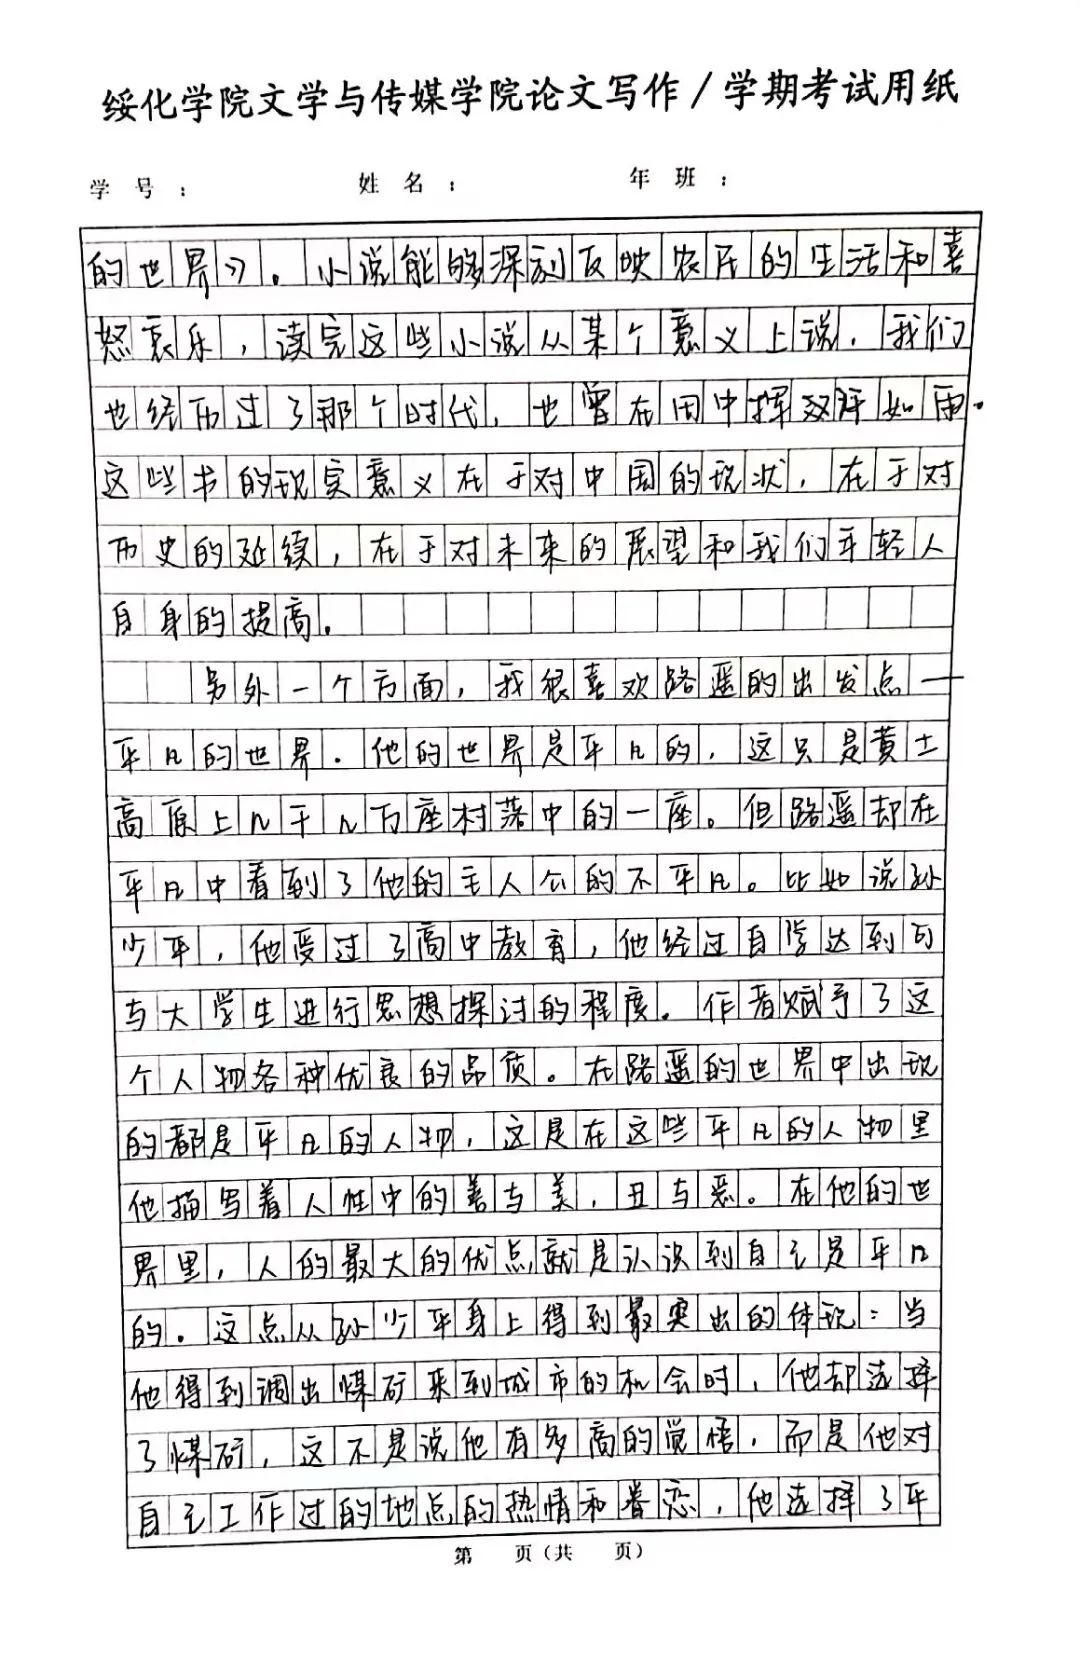 绥化学院文学与传媒学院论文写作/学期考试用纸
学号： 姓名： 年班：
的世界》。小说能够深刻反映农民的生活和喜
怒哀乐，读完这些小说从某个意义上说，我们
也经历过了那个时代，也曾在田中挥汗如雨。
这些书的现实意义在于对中国的现状，在于对
历史的延续，在于对未来的展望和我们年轻人
自身的提高。
另外一个方面，我很喜欢路遥的出发点—
平凡的世界．他的世界是平凡的，这只是黄土
高原上几千几万座村落中的一座。但路遥却在
平凡中看到了他的主人公的不平凡。比如说孙
少平，他受过了高中教育，他经过自学达到可
与大学生进行思想探讨的程度．作者赋予了这
个人物各种优良的品质。在路遥的世界中出现
的都是平凡的人物，这是在这些平凡的人物里
他描写着人性中的善与美，丑与恶。在他的世
界里，人的最大的优点就是认识到自己是平凡
的．这点从孙少平身上得到最突出的体现：当
他得到调出煤矿来到城市的机会时，他却选择
了煤矿，这不是说他有多高的觉悟，而是他对
自己工作过的地点的热情和眷恋，他选择了平
第 页（共 页）